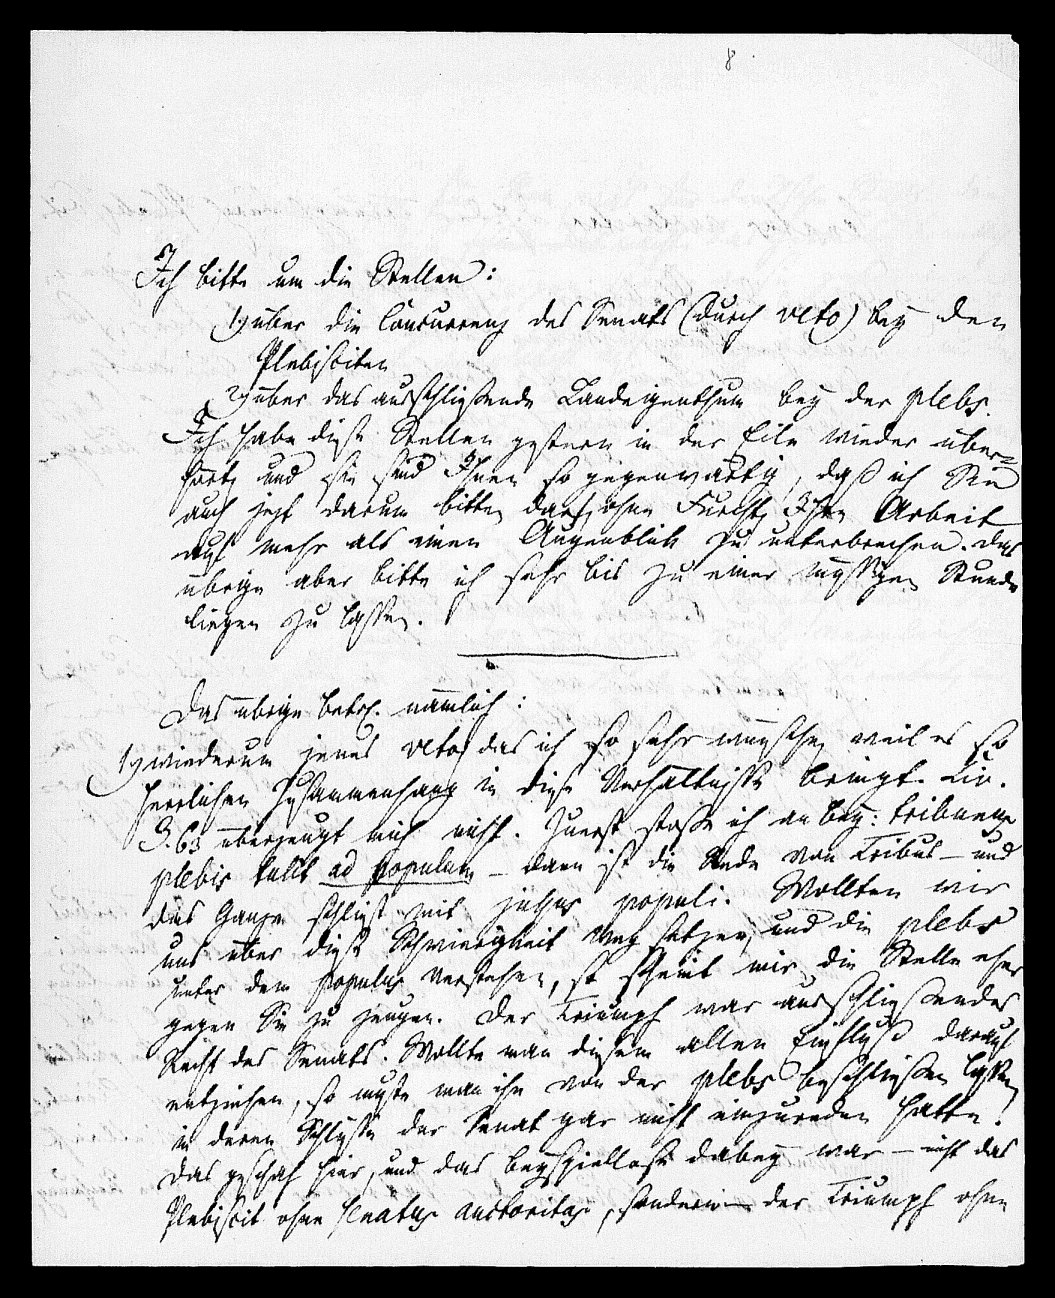 8
Ich bitte um die Stellen:
1, über die Concurrenz des Senats (durch veto) bey den
Plebisciten
2, über das ausschließende Landeigenthum bey der plebs.
Ich habe diese Stellen gestern in der Eile wieder über-
hört, und sie sind Ihnen so gegenwärtig, daß ich Sie
auch jezt darum bitten darf, ohne Furcht, Ihre Arbeit
auf mehr als einen Augenblick zu unterbrechen. Das
übrige aber bitte ich sehr bis zu einer müßigen Stunde
liegen zu lassen.
Das übrige betr. nämlich:
1, wiederum jenes veto, das ich so sehr wünsche, weil es so
herrlichen Zusammenhang in diese Verhältnisse bringt. Liv.
3. 63 überzeugt mich nicht. Zuerst stoße ich an bey: tribunus
plebis tulit ad populum – dann ist die Rede von Tribus – und
das Ganze schließt mit jussus populi. Wollten wir
uns über diese Schwierigkeit weg setzen, und die plebs
unter dem populus verstehen, so scheint mir die Stelle eher
gegen Sie zu zeugen. Der Triumph war ausschließendes
Recht des Senats. Wollte man diesem allen Einfluß darauf
entziehen, so mußte man ihn von der plebs beschließen lassen,
in deren Schlüsse der Senat gar nicht einzureden hatte.
Das geschah hier, und das beyspiellose dabey war – nicht das
Plebiscit ohne senatus auctoritas, sondern – der Triumph ohne